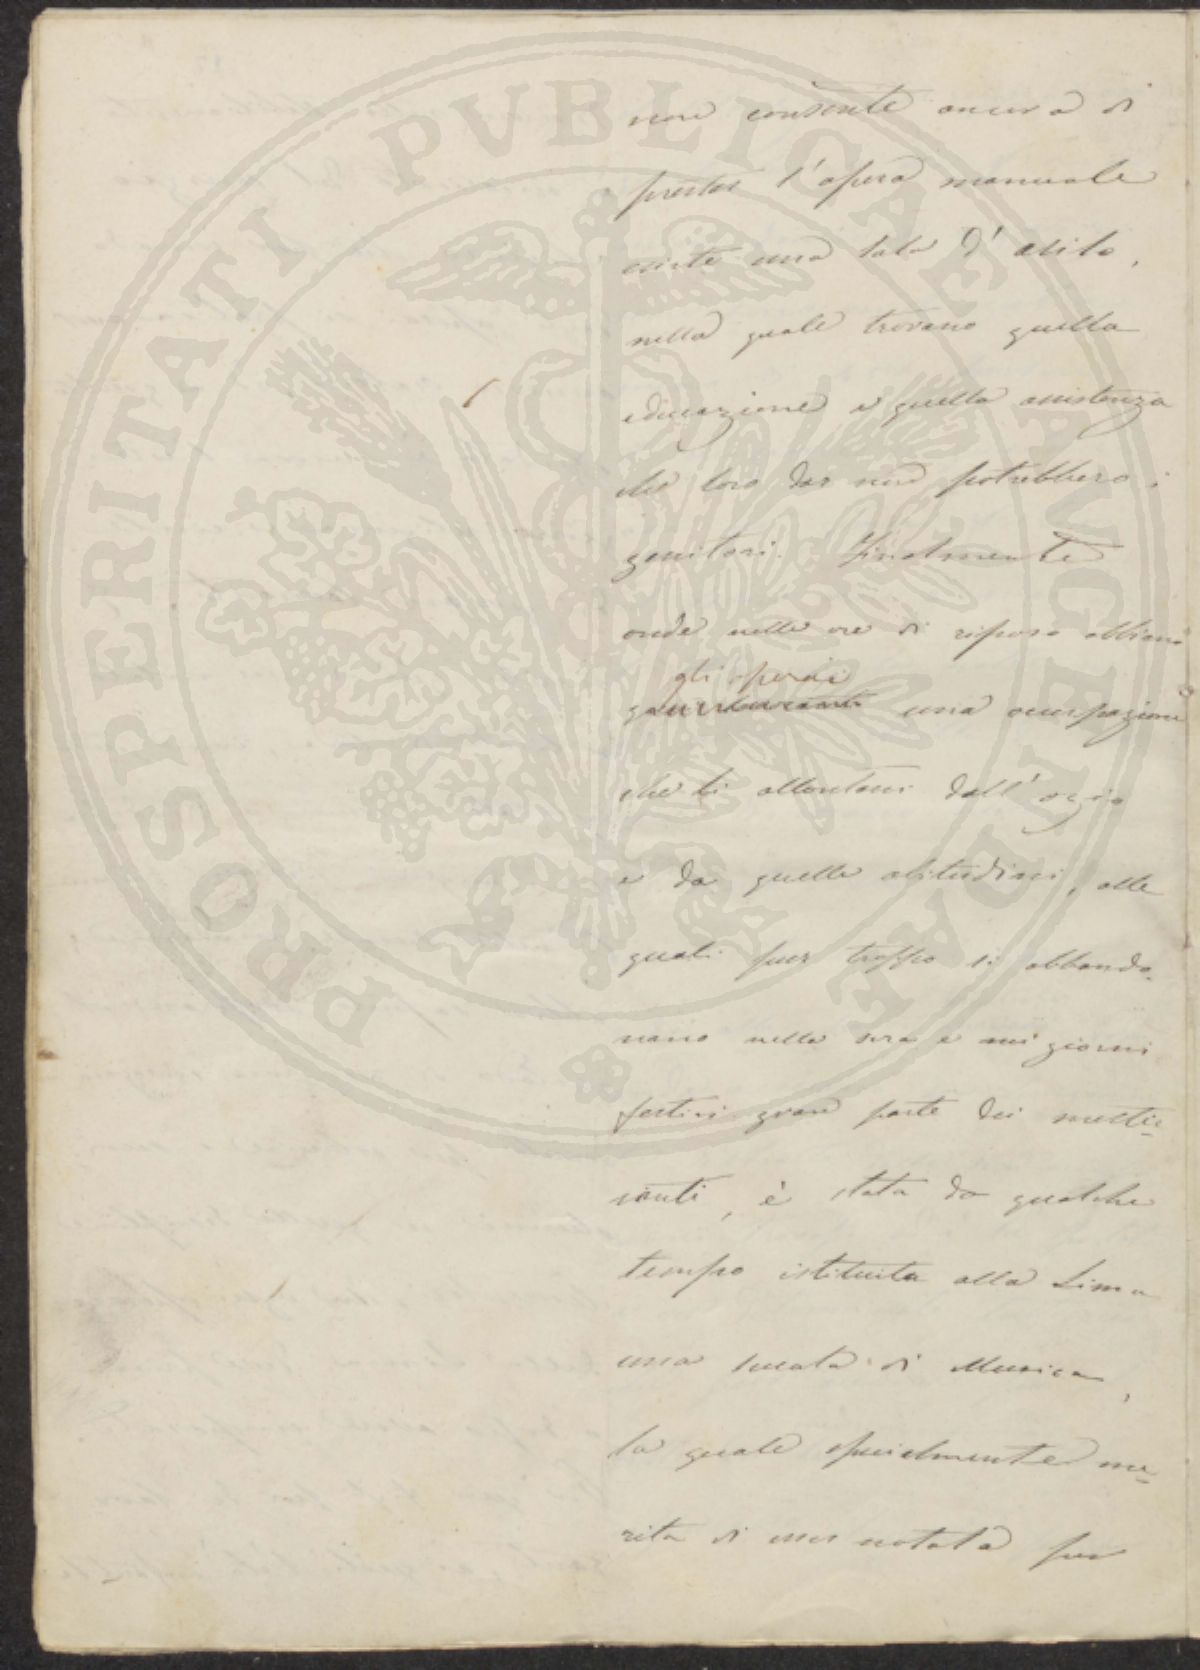 PROSPERITATI PVBLICAE AVGENDAE
non consente ancora di
prestar l'opera manuale
esiste una sala d'asilo,
nella quale trovano quella
educazione e quella assistenza
che loro dar non potrebbero i
genitori. Finalmente
onde nelle ore di riposo abbiano
gli operai
una occupazione
che li allontani dall'ozio
e da quelle abitudini, alle
quali pur troppo si abbando-
nano nella sera e nei giorni
festivi gran parte dei mestie-
ranti, è stata da qualche
tempo istituita alla Lima
una scuola di Musica,
la quale specialmente me-
rita di esser notata per